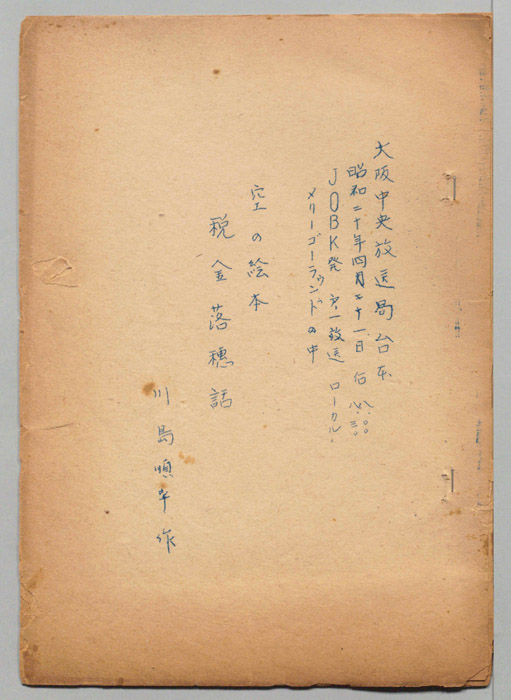 大阪中央放送局台本
昭和二十年四月二十一日 後 八.〇〇 八.三〇
JOBK発 第一放送 ローカル.
メリーゴーラウンドの中
空の絵本
税金落穂話
川島順平作